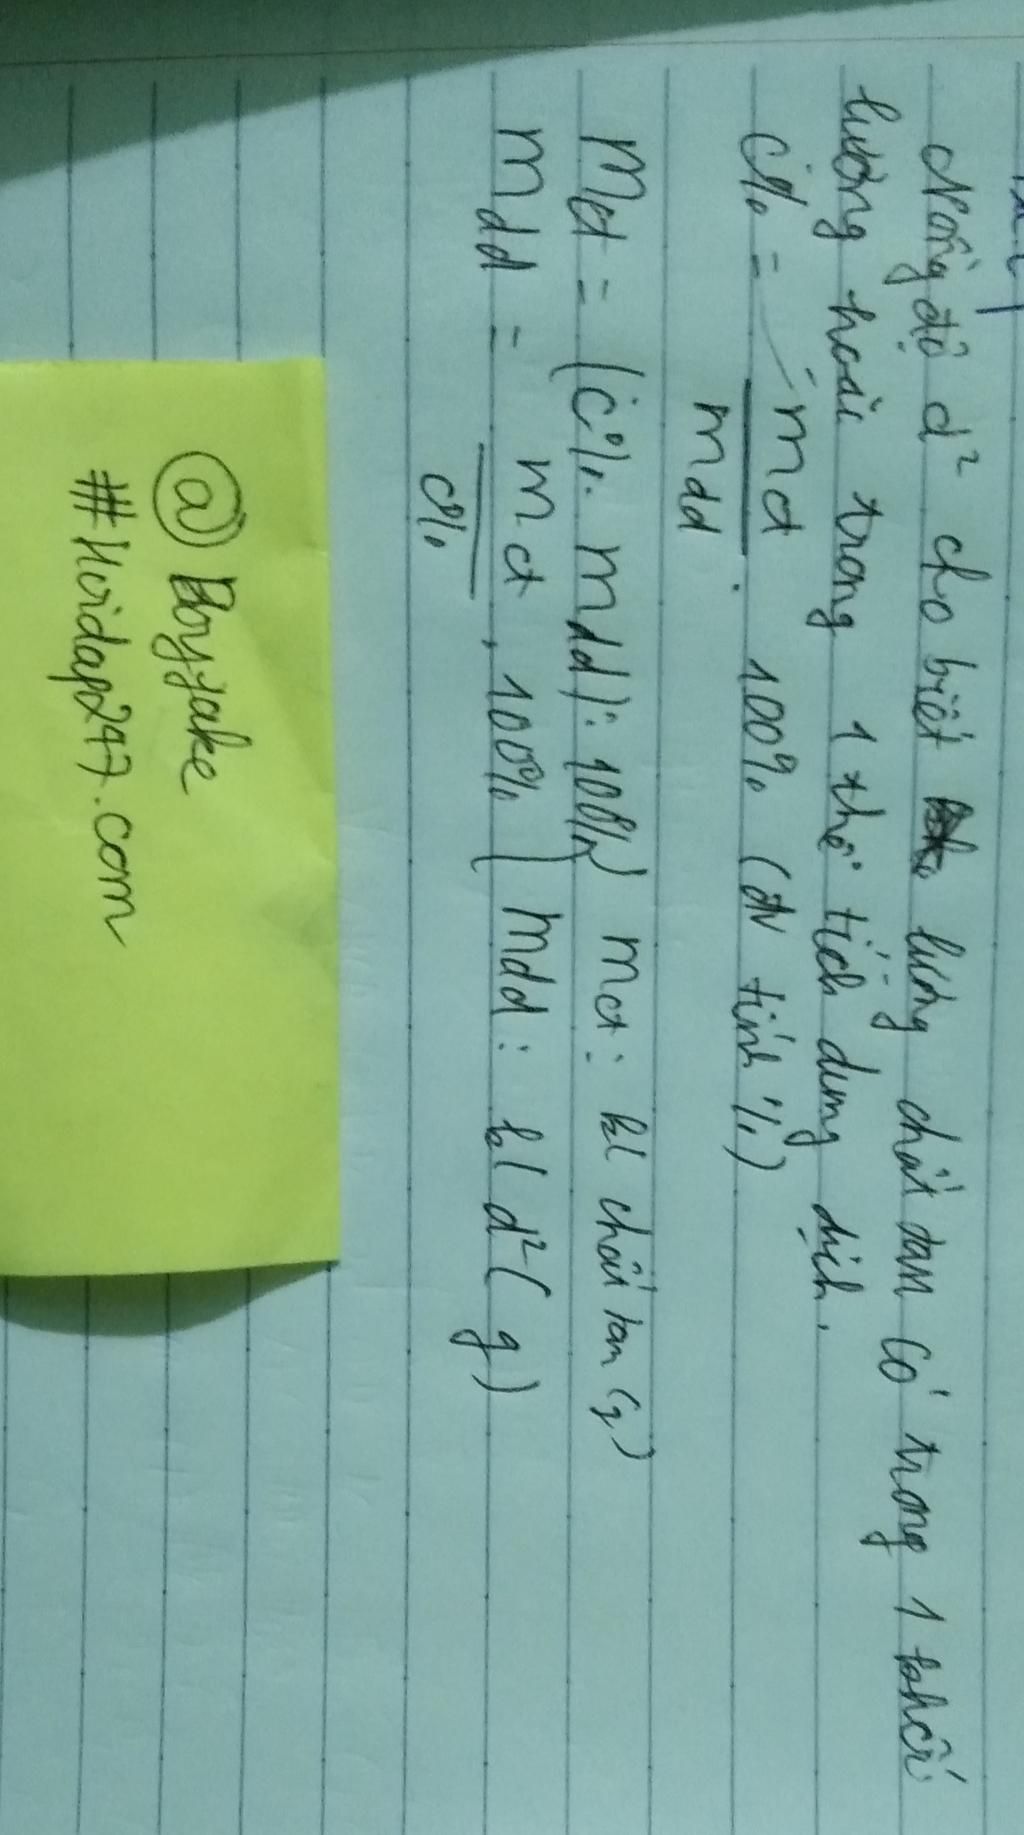 Nồng độ d² cho biết lượng chất tan có trong 1 khối
lượng hoặc trong 1 thể tích dung dịch.
C% = mct / mdd . 100% (đv tính %)
Mct = (C%. mdd): 100% mct: kl chất tan (g)
mdd = mct . 100% / C% mdd: kl d² (g)
@ Boyjake
#Hoidap247.com